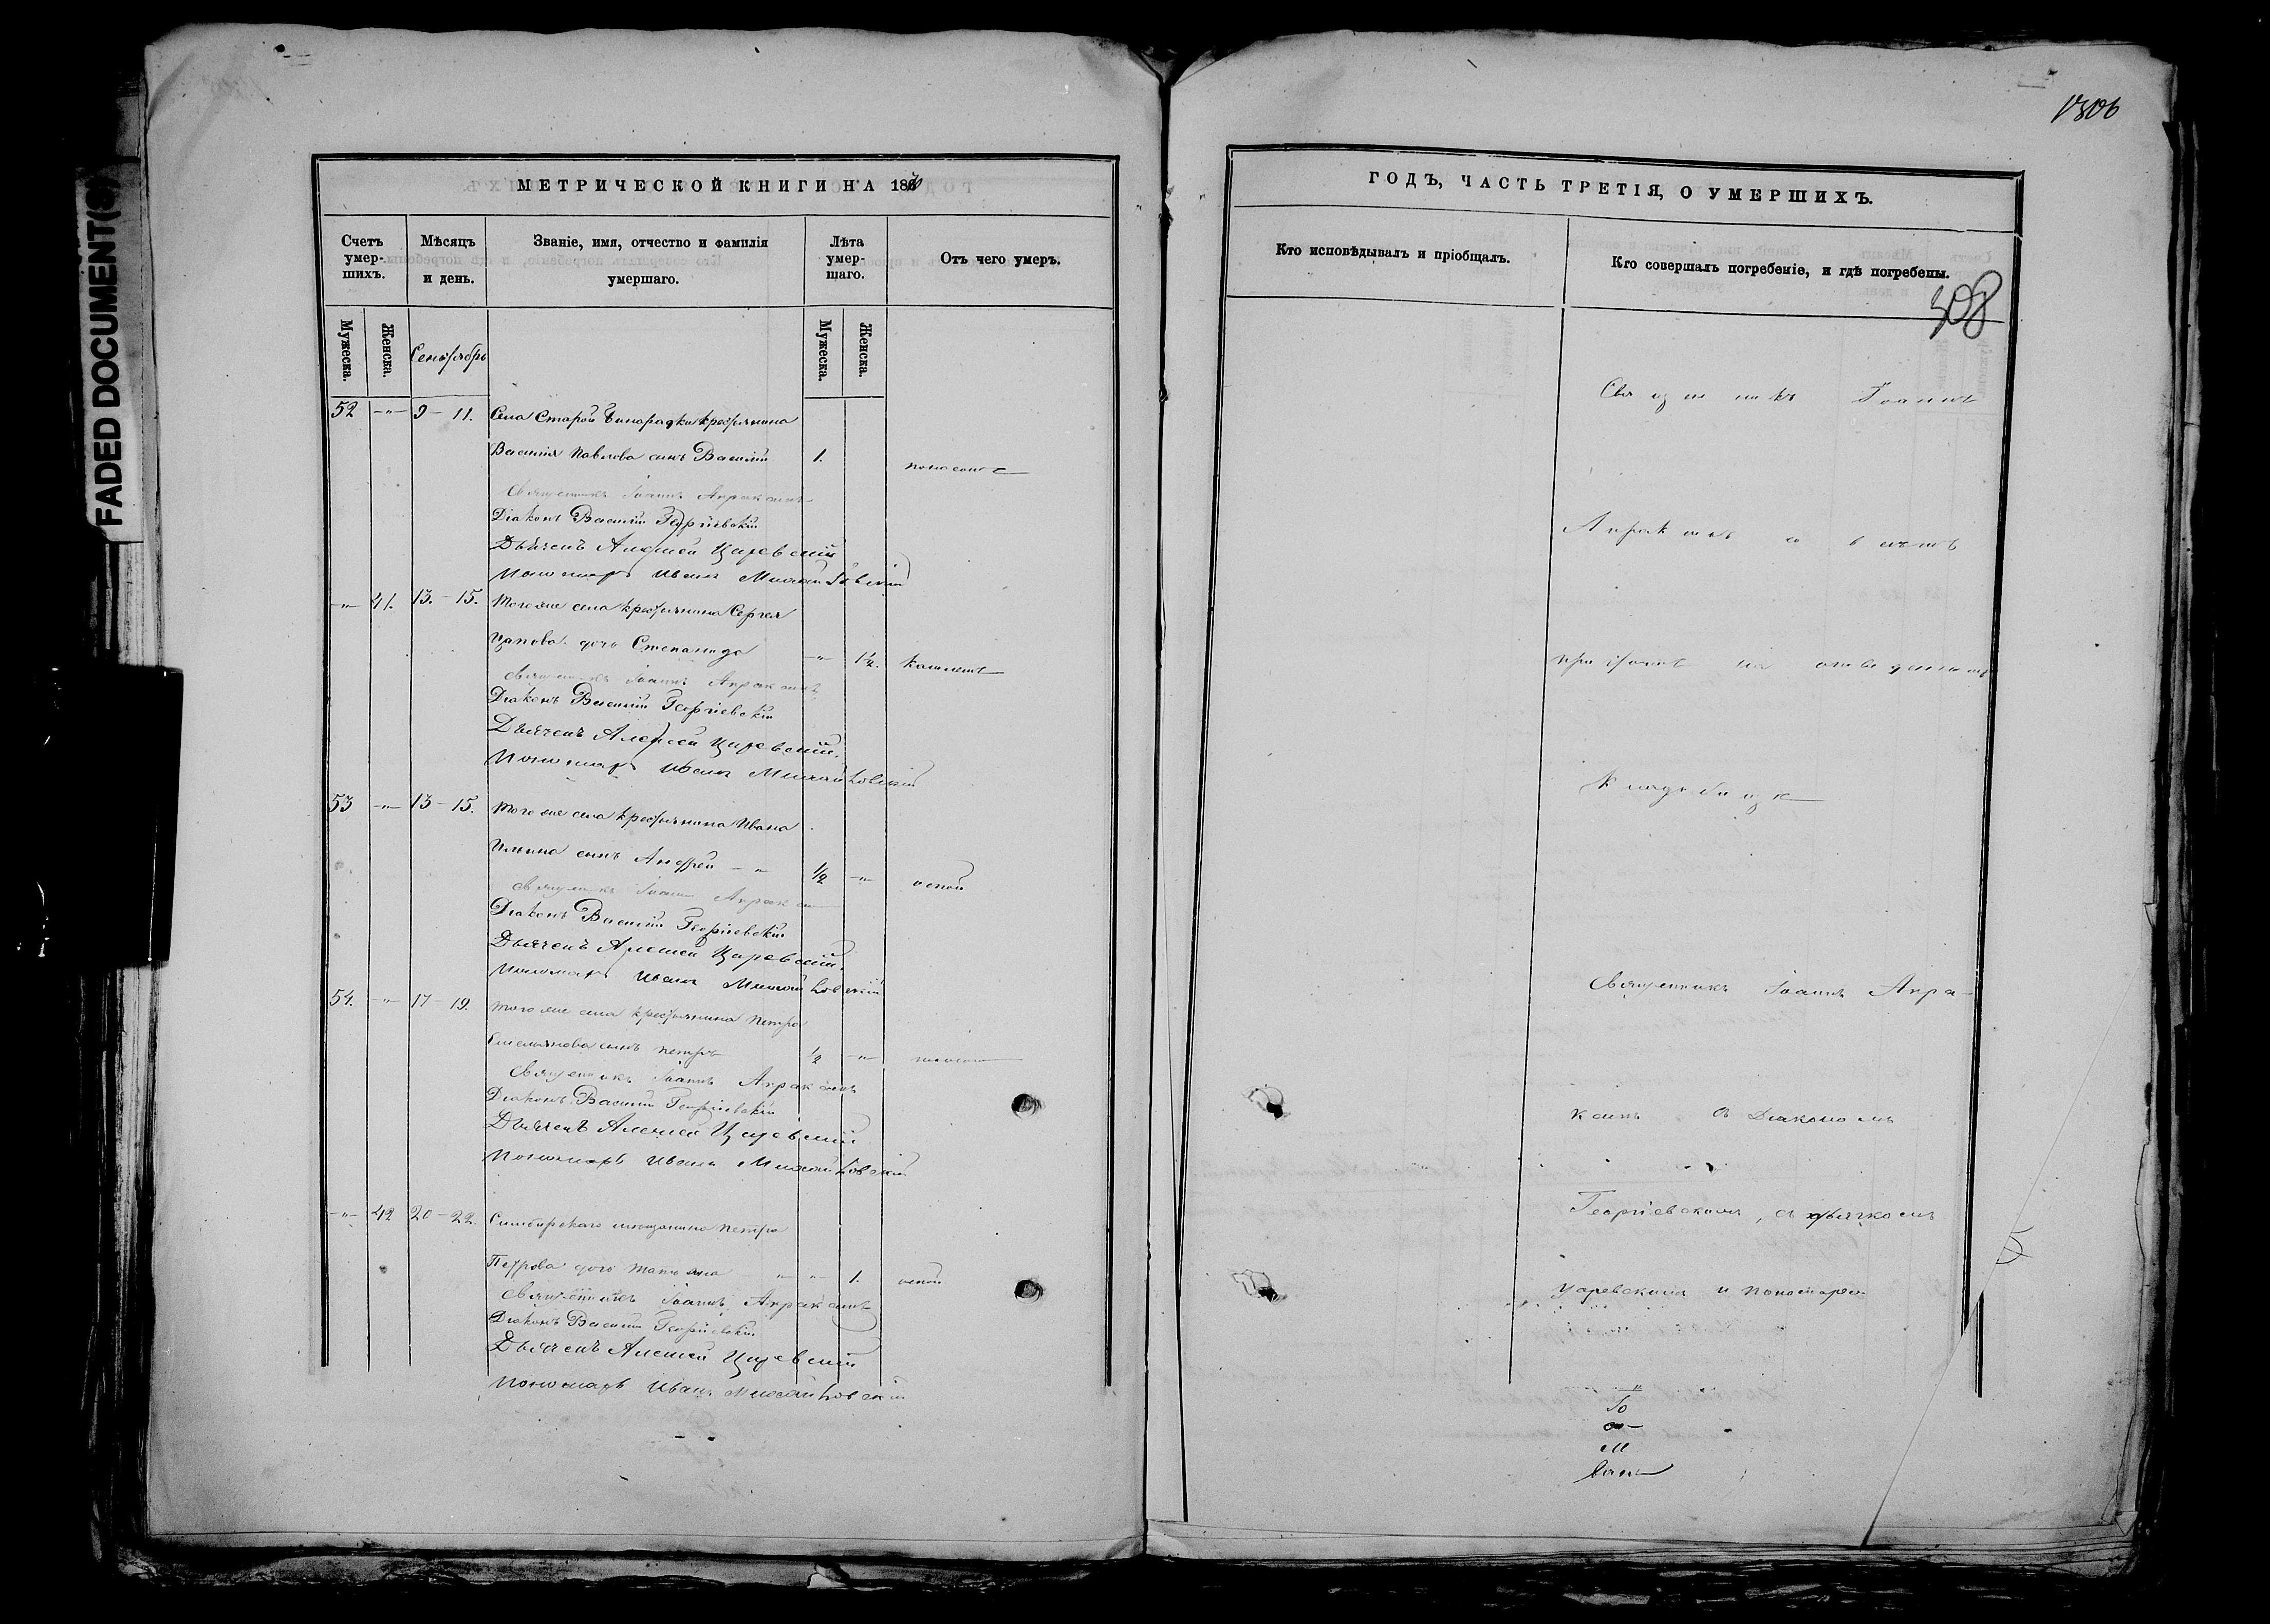 FADED DOCUMENT(S)
1306
МЕТРИЧЕСКОЙ КНИГИ НА 1870
Счетъ умер-шихъ.
Мѣсяцъ и день.
Званіе, имя, отчество и фамилія умершаго.
Лѣта умер-шаго.
Отъ чего умеръ.
Мужеска.
Женска.
Сентябрь
Мужеска.
Женска.
52 -"- 9 - 11. Села Старой Бинарадки крестьянина
Василія Павлова сынъ Василій 1. поносомъ
Священникъ Іоаннъ Апраксинъ
Діаконъ Василій Георгіевскій
Дьячекъ Алексей Царевскій
Пономарь Иванъ
-"- 41. 13. - 15. Того же села крестьянина Сергея
дочь Степанида -"- 1/2. кашлемъ
Священникъ Іоаннъ Апраксинъ
Діаконъ Василій Георгіевскій
Дьячекъ Алексей Царевскій.
Пономарь Иванъ
53 -"- 13 - 15. Того же села крестьянина Ивана
Ильина сынъ Андрей - " 1/2 -"- оспой
Священникъ Іоаннъ Апраксинъ
Діаконъ Василій Георгіевскій
Дьячекъ Алексей Царевскій.
Пономарь Иванъ
54. -"- 17 - 19. Того же села крестьянина Петра
Емельянова сынъ Петръ 1/2 -"- поносомъ
Священникъ Іоаннъ Апраксинъ
Діаконъ Василій Георгіевскій
Дьячекъ Алексей Царевскій
Пономарь Иванъ
-"- 42 20 - 22. Симбирскаго мещанина Петра
Петрова дочь Татьяна -"- 1. оспой
Священникъ Іоаннъ Апраксинъ
Діаконъ Василій Георгіевскій
Дьячекъ Алексей Царевскій
Пономарь Иванъ
ГОДЪ, ЧАСТЬ ТРЕТІЯ, О УМЕРШИХЪ.
Кто исповѣдывалъ и пріобщалъ.
Кто совершалъ погребеніе, и гдѣ погребены.
308
Священникъ Іоаннъ
Апраксинъ со
причтомъ на отведенномъ
Кладбище
Священникъ Іоаннъ Апра-
ксинъ съ Діакономъ
Георгіевскимъ, съ дьячкомъ
Царевскимъ и пономарем